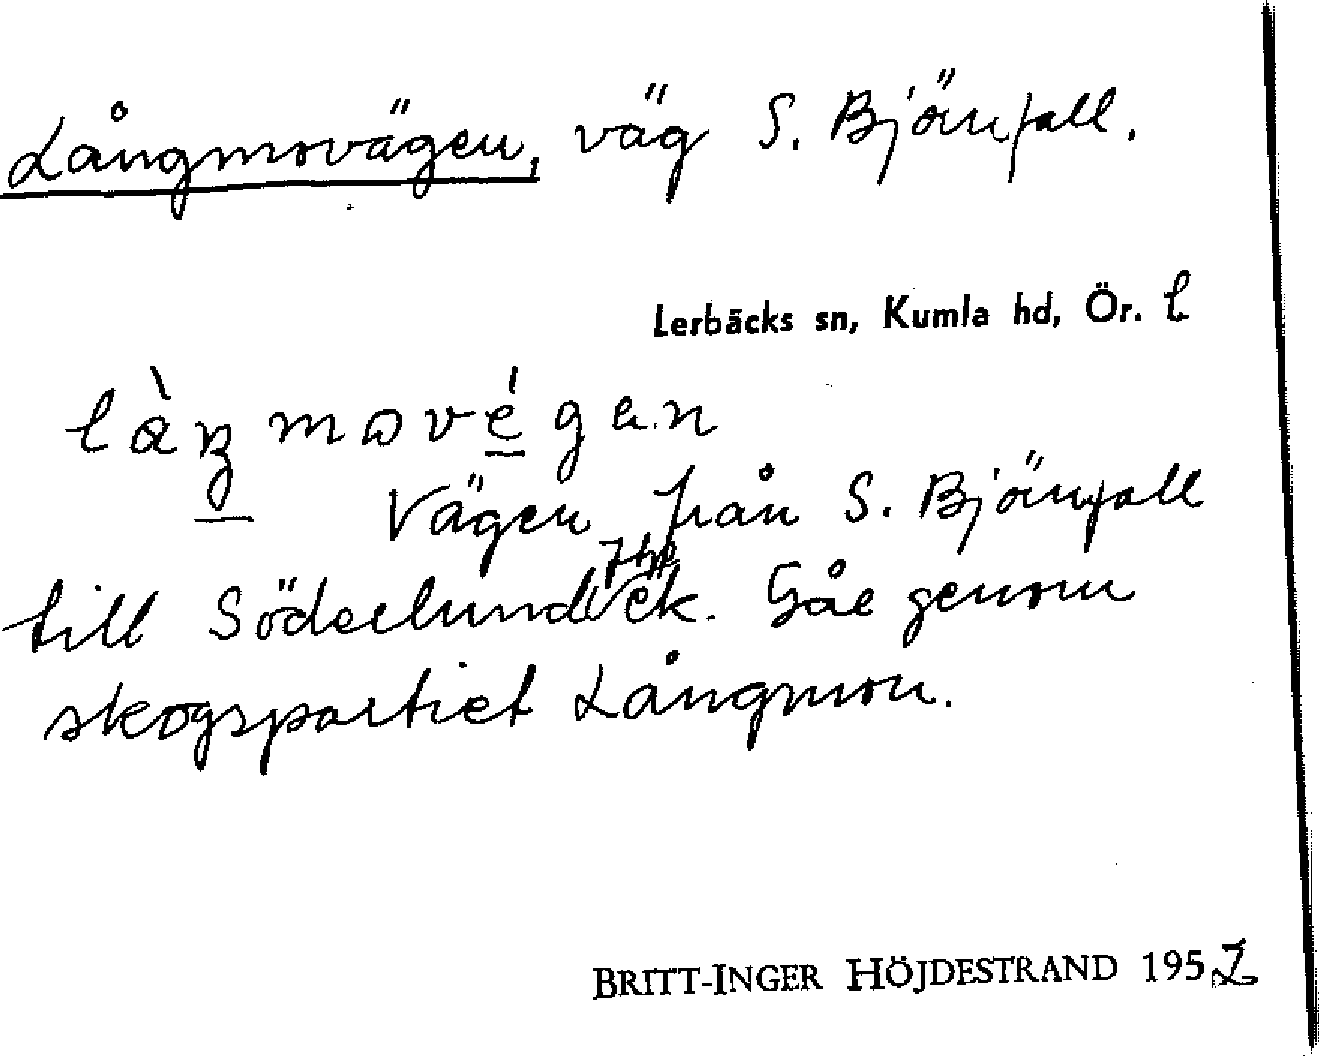 Långmovägen, väg S. Björnfall.
Lerbäcks sn, Kumla hd, Ör. l
làŋmovégan
Vägen från S. Björnfall
till Söderlund Går genom
skogspartiet Långmon.
BRITT-INGER HÖJDESTRAND 1952